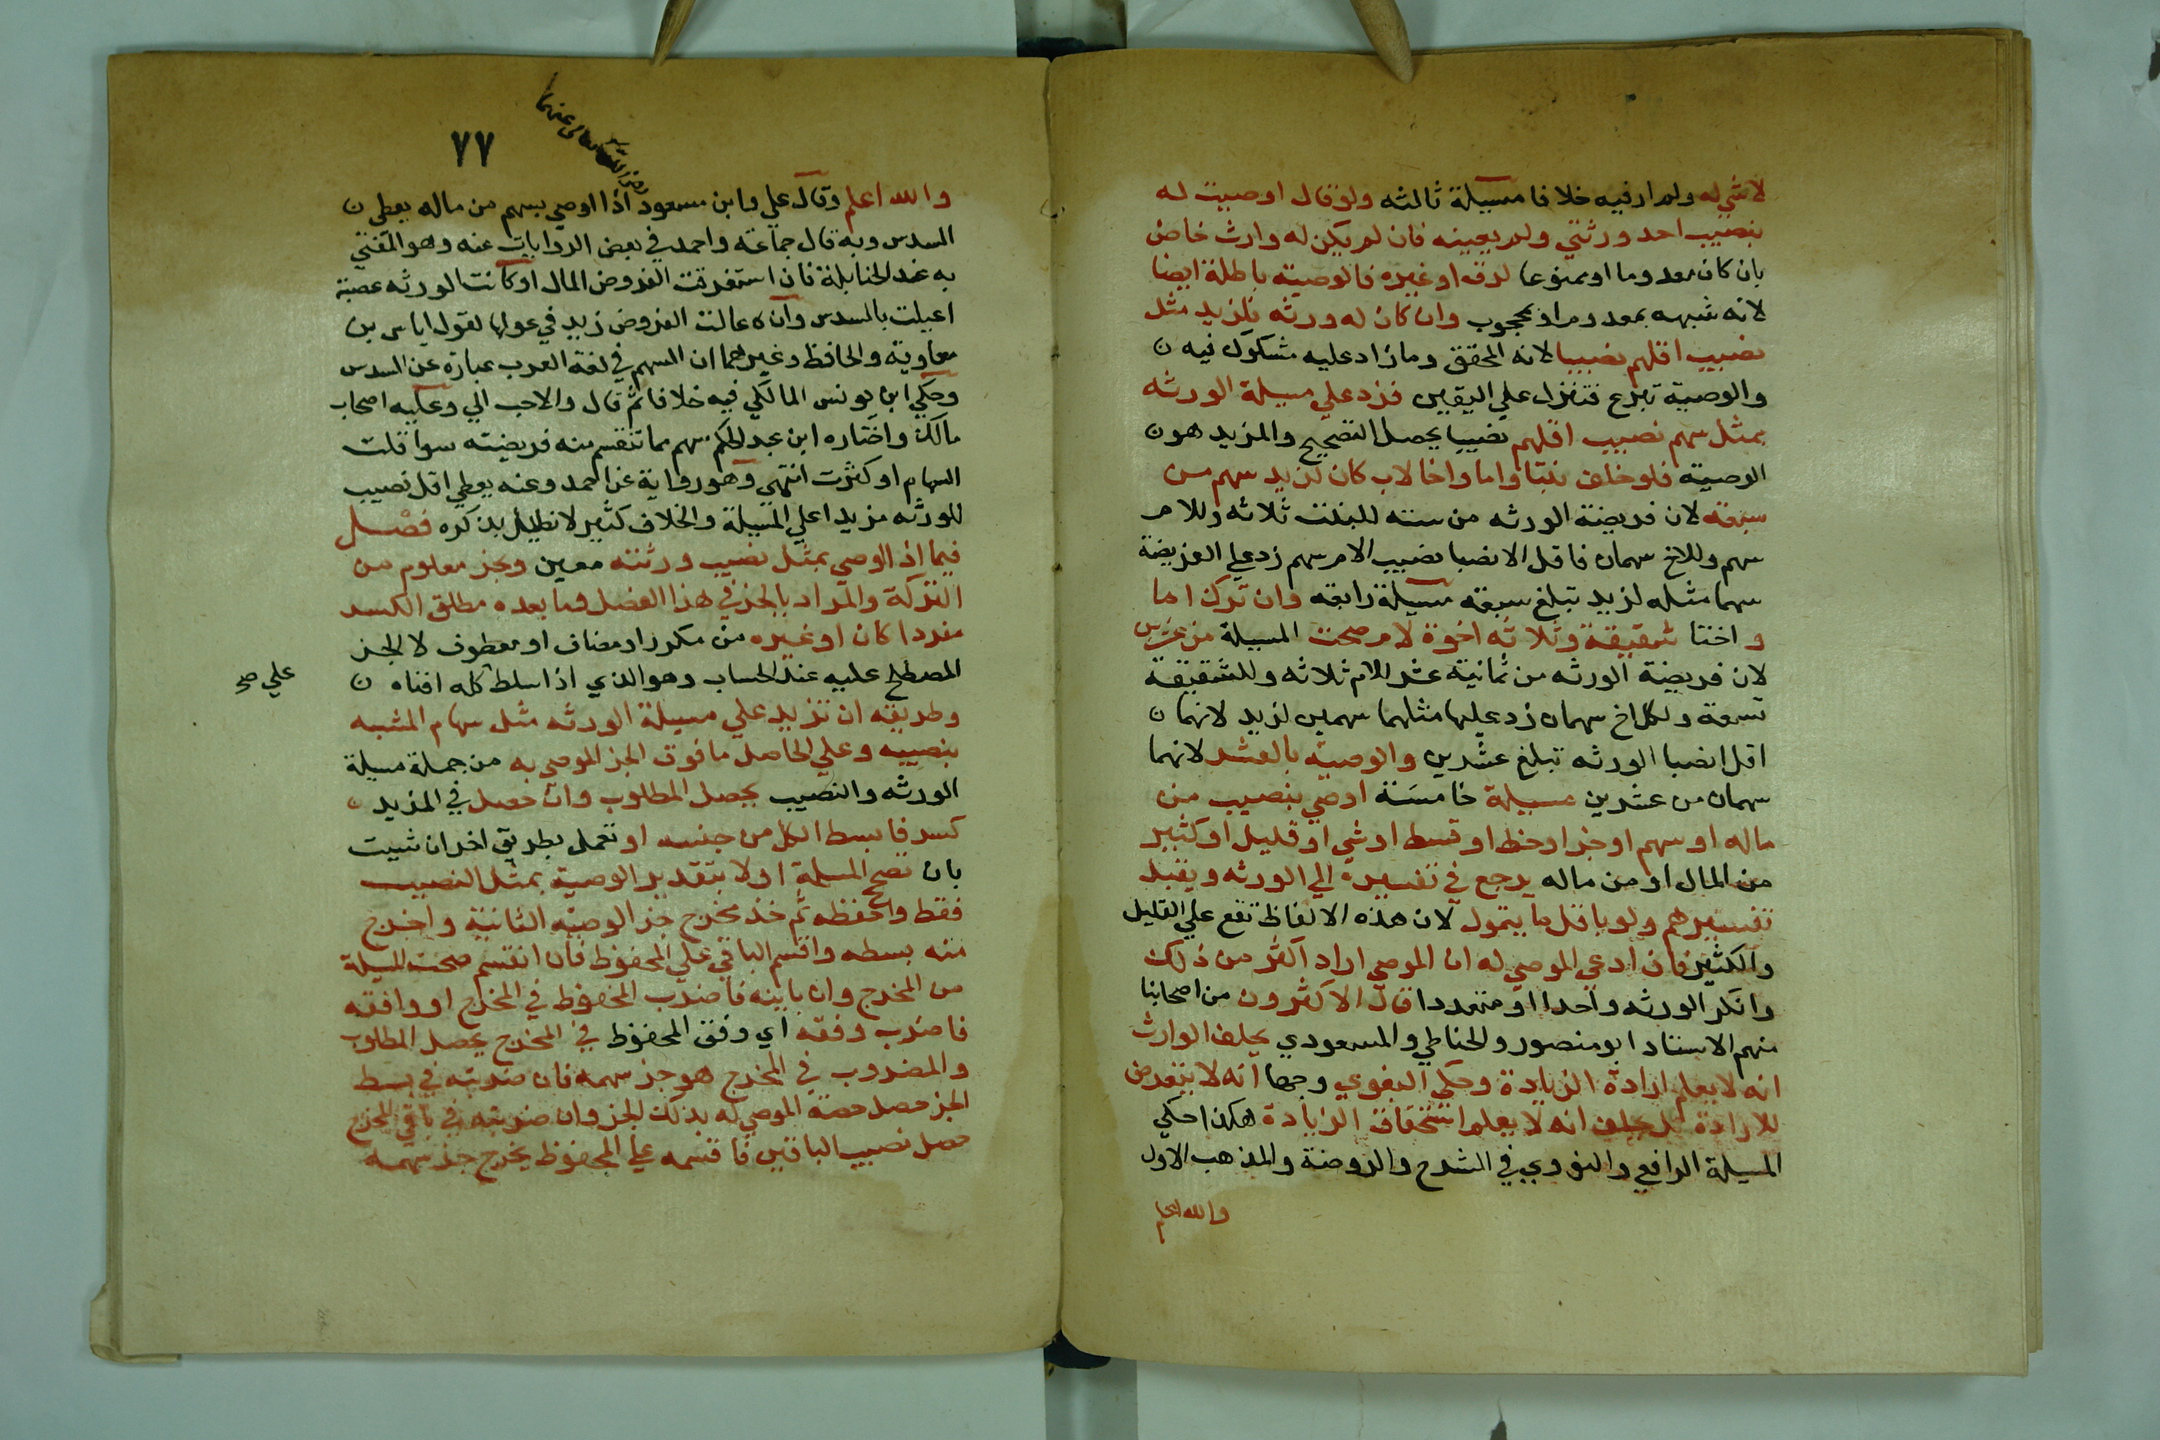 لا شي له ولم ار فيه خلافا مسيلة ثالثه ولو قال اوصيت له
بنصيب احد ورثتي ولم يعينه فان لم يكن له وارث خاص
بان كان معدوما او ممنوعا لرقه او غيره فالوصيته باطلة ايضا
لانه شبهه بمعدوم او بمحجوب وان كان له ورثه فلزيد مثل
نصيب اقلهم نصيبا لانه المحقق وما زاد عليه مشكوك فيه ن
والوصية تبرع فتنزل علي اليقين فزد علي مسيلة الورثه
بمثل سهم نصيب اقلهم نصيبا يحصل التصحيح والمزيد هو ن
الوصية فلو خلف بنتا واما واخا لاب كان لزيد سهم من
سبعه لان فريضة الورثه من سته للبنت ثلاثه وللام
سهم وللاخ سهمان فاقل الانصبا نصيب الام سهم زد علي الفريضة
سهما مثله لزيد تبلغ سبعه مسيلة رابعه وان ترك اما
واختا شقيقة وثلاثه اخوة لام صحت المسيلة من عشرين
لان فريضة الورثه من ثمانية عشر للام ثلاثه وللشقيقة
تسعة ولكل اخ سهمان زد عليها مثلهما سهمين لزيد لانهما ن
اقل انصبا الورثه تبلغ عشرين والوصية بالعشر لانهما
سهمان من عشرين مسيلة خامسة اوصي بنصيب من
ماله او سهم او جزا او حظ او قسط او شي او قليل او كثير
من المال او من ماله يرجع في تفسيره الي الورثه ويقبل
تفسيرهم ولو باقل ما يتمول لان هذه الالفاظ تقع علي القليل
والكثير فان ادعي الموصي له ان الموصي اراد اكثر من ذلك
وانكر الورثه واحدا او متعددا قال الاكثرون من اصحابنا
منهم الاستاد ابو منصور والحناطي والمسعودي يحلف الوارث
انه لا يعلم ارادة الزيادة وحكي البغوي وجها انه لا يتعرض
للارادة بل يحلف انه لا يعلم استحقاق الزيادة هكذا حكي
المسيلة الرافعي والنووي في الشرح والروضة والمذهب الاول
والله اعلم
٧٧
رضي الله تعالى عنهما
والله اعلم وقال علي وابن مسعود اذا اوصي بسهم من ماله يعطي ن
السدس وبه قال جماعة واحمد في بعض الروايات عنه وهو المفتي
به عند الحنابلة فان استغرقت الفروض المال او كانت الورثه عصبة
اعيلت بالسدس وان عالت الفروض زيد في عولها لقول اياس بن
معاوية والحافظ وغيرهما ان السهم في لغة العرب عبارة عن السدس
وحكي ابن يونس المالكي فيه خلافا ثم قال والاحب الي وعليه اصحاب
مالك واختاره ابن عبد الحكم سهم مما تنقسم منه فريضته سوا قلت
السهام او كثرت انتهي وهو رواية عن احمد وعنه يعطي اقل نصيب
للورثه مزيدا علي المسيلة والخلاف كثير لا نطيل بذكره فصل
فيما اذا اوصي بمثل نصيب ورثته معين وبجز معلوم من
التركة والمراد بالجز في هذا الفصل وما بعده مطلق الكسر
مفردا كان او غيره من مكرر او مضاف او معطوف لا الجز
المصطلح عليه عند الحساب وهو الذي اذا سلط كله افناه ن
علي صح
وطريقه ان تزيد علي مسيلة الورثه مثل سهام المشبه
بنصيبه وعلي الحاصل ما فوق الجز الموصي به من جملة مسيلة
الورثه والنصيب يحصل المطلوب وان حصل في المزيد ن
كسر فابسط الكل من جنسه او تعمل بطريق اخر ان شيت
بان تصح المسلة اولا بتقدير الوصية بمثل النصيب
فقط واحفظه ثم خذ مخرج جز الوصية الثانية واخرج
منه بسطه واقسم الباقي علي المحفوظ فان انقسم صحت المسيلة
من المخرج وان باينه فاضرب المحفوظ في المخرج او وافقه
فاضرب وفقه اي وفق المحفوظ في المخرج يحصل المطلوب
والمضروب في المخرج هو جز سهمه فان ضربته في بسط
الجز حصل حصة الموصي له بذلك الجز وان ضربته في باقي المخرج
حصل نصيب الباقين فاقسمه علي المحفوظ يخرج جز سهمه